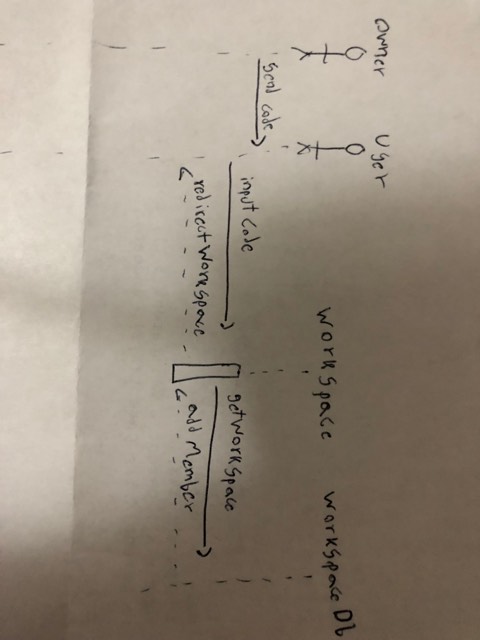 Owner
User
WorkSpace
WorkSpace Db
Send code
input Code
getWorkSpace
redirectWorkSpace
add Member